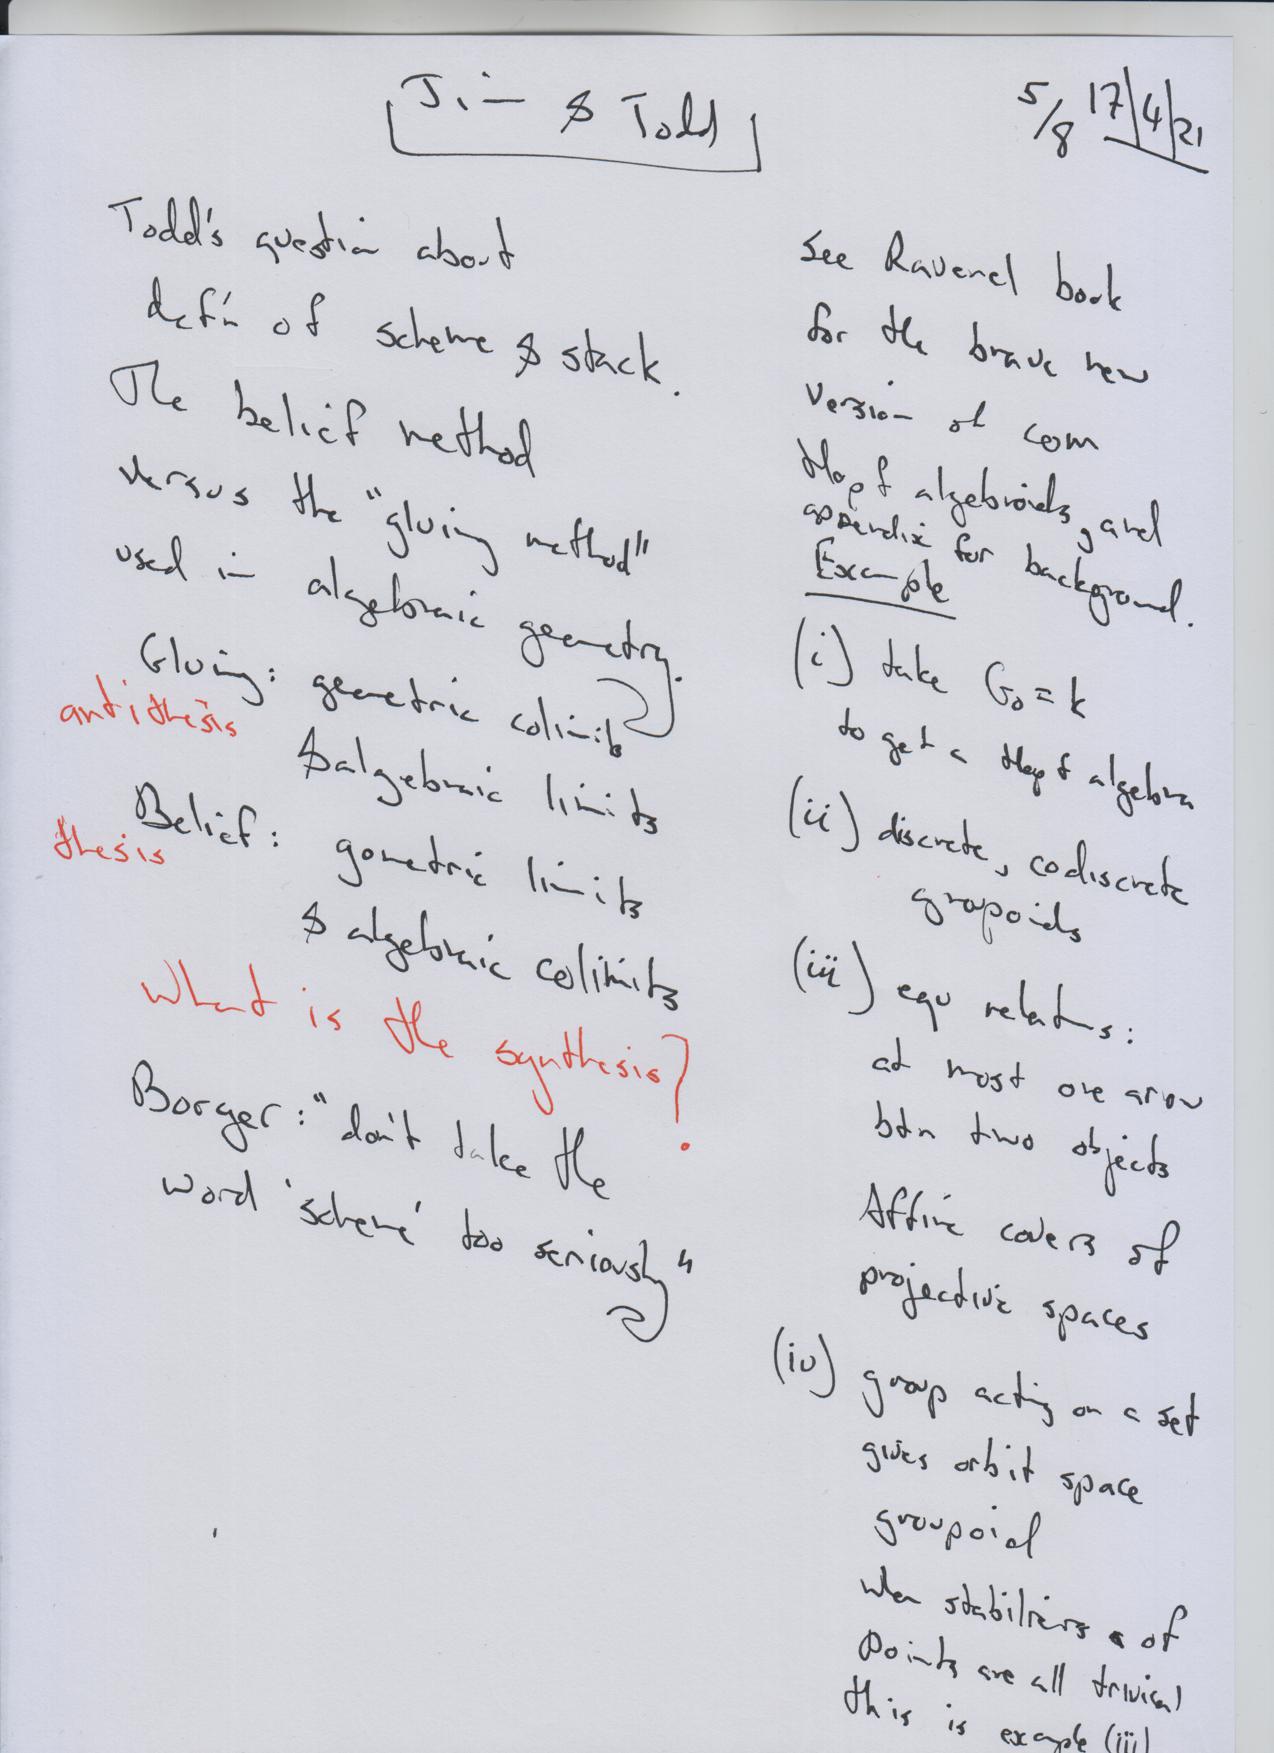 Jim & Todd
5/8 17/4/21
Todd's question about
def'n of scheme & stack.
The belief method
versus the "gluing method"
used in algebraic geometry.
Gluing: geometric colimits
antithesis
& algebraic limits
Belief: gometric limits
thesis
& algebraic colimits
What is the synthesis?
Borger: "don't take the
word 'scheme' too seriously"
See Ravenel book
for the brave new
version of com
Hopf algebroids, and
appendix for background.
Example
(i) take G₀ = k
to get a Hopf algebra
(ii) discrete, codiscrete
groupoids
(iii) equ relatns:
at most one arrow
btn two objects
Affine covers of
projective spaces
(iv) group acting on a set
gives orbit space
groupoid
when stabilizers of
points are all trivial
this is example (iii)